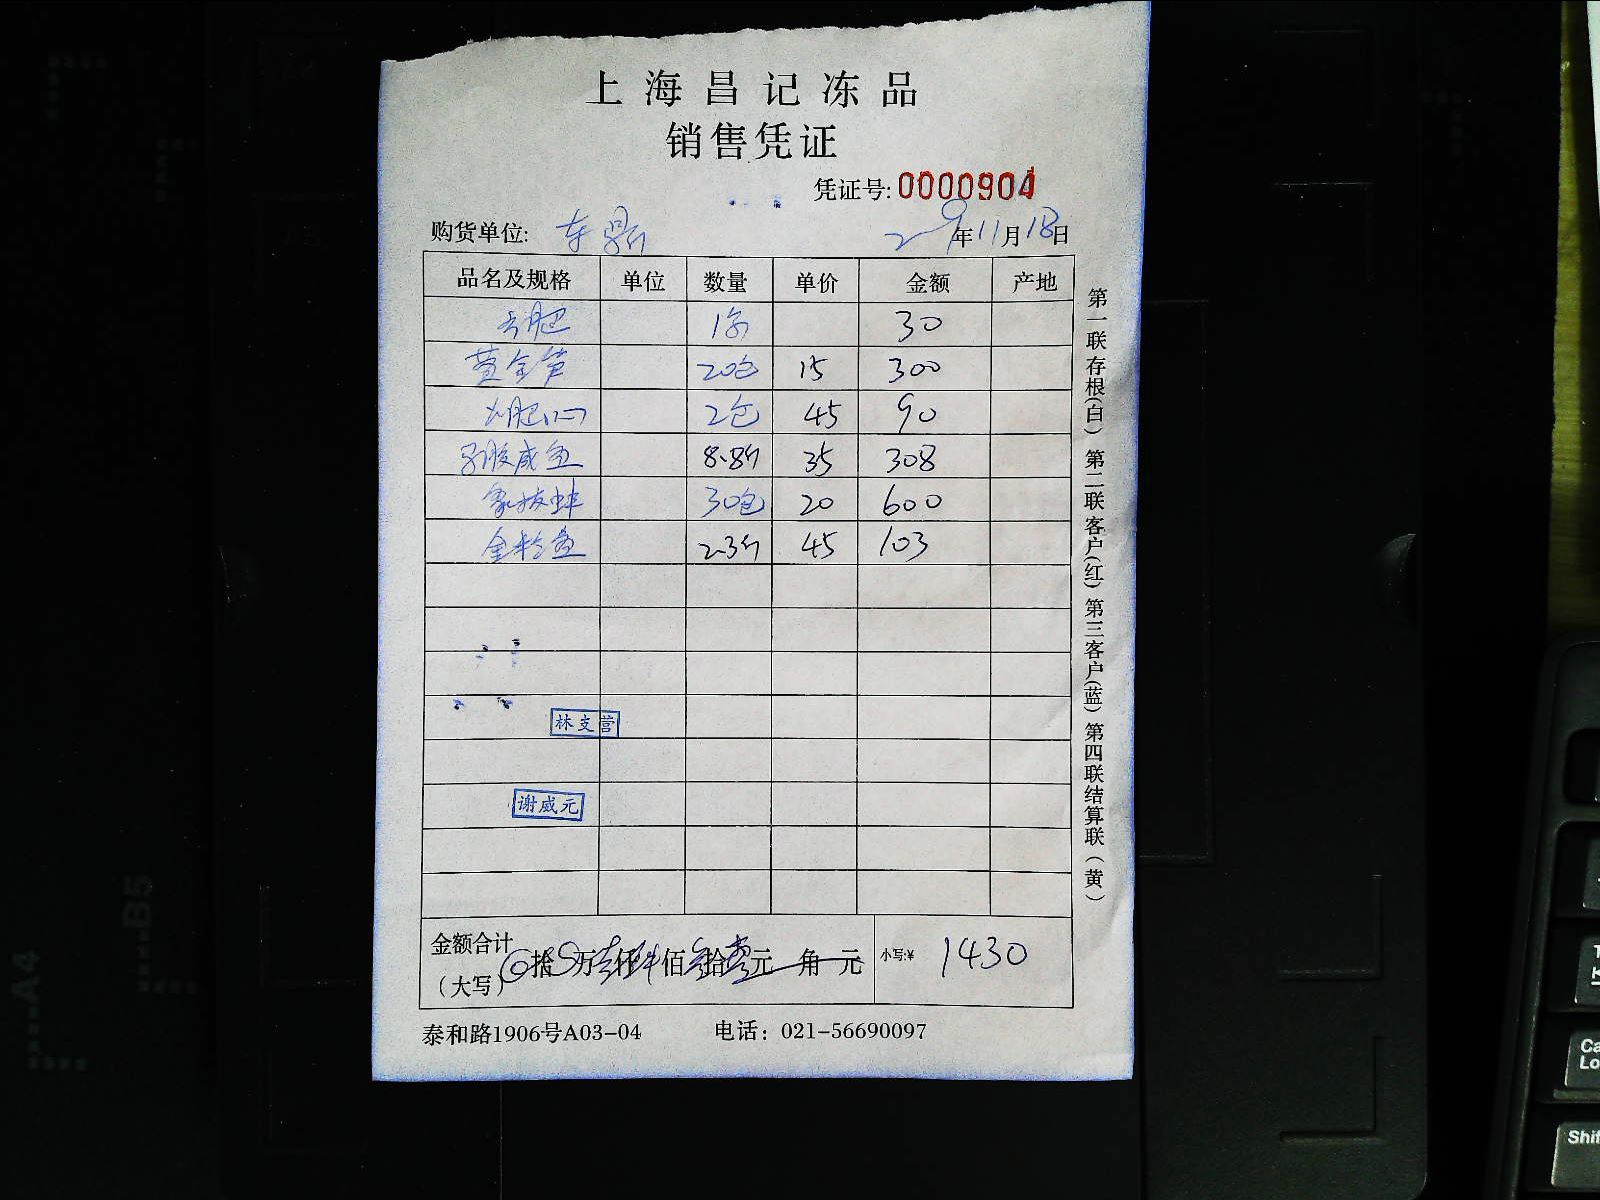 上海昌记冻品
销售凭证
凭证号: 0000904
购货单位: 东鼎 29年11月18日
品名及规格 单位 数量 单价 金额 产地
30
黄金笋 20包 15 300
2包 45 90
8.8斤 35 308
象拔蚌 30包 20 600
2.3斤 45 103
林支营
谢威元
金额合计 拾 万 仟 佰 拾 元 角 元 小写:¥ 1430
(大写)
泰和路1906号A03-04 电话: 021-56690097
第一联存根(白) 第二联客户(红) 第三客户(蓝) 第四联结算联(黄)
A4
B5
Shif